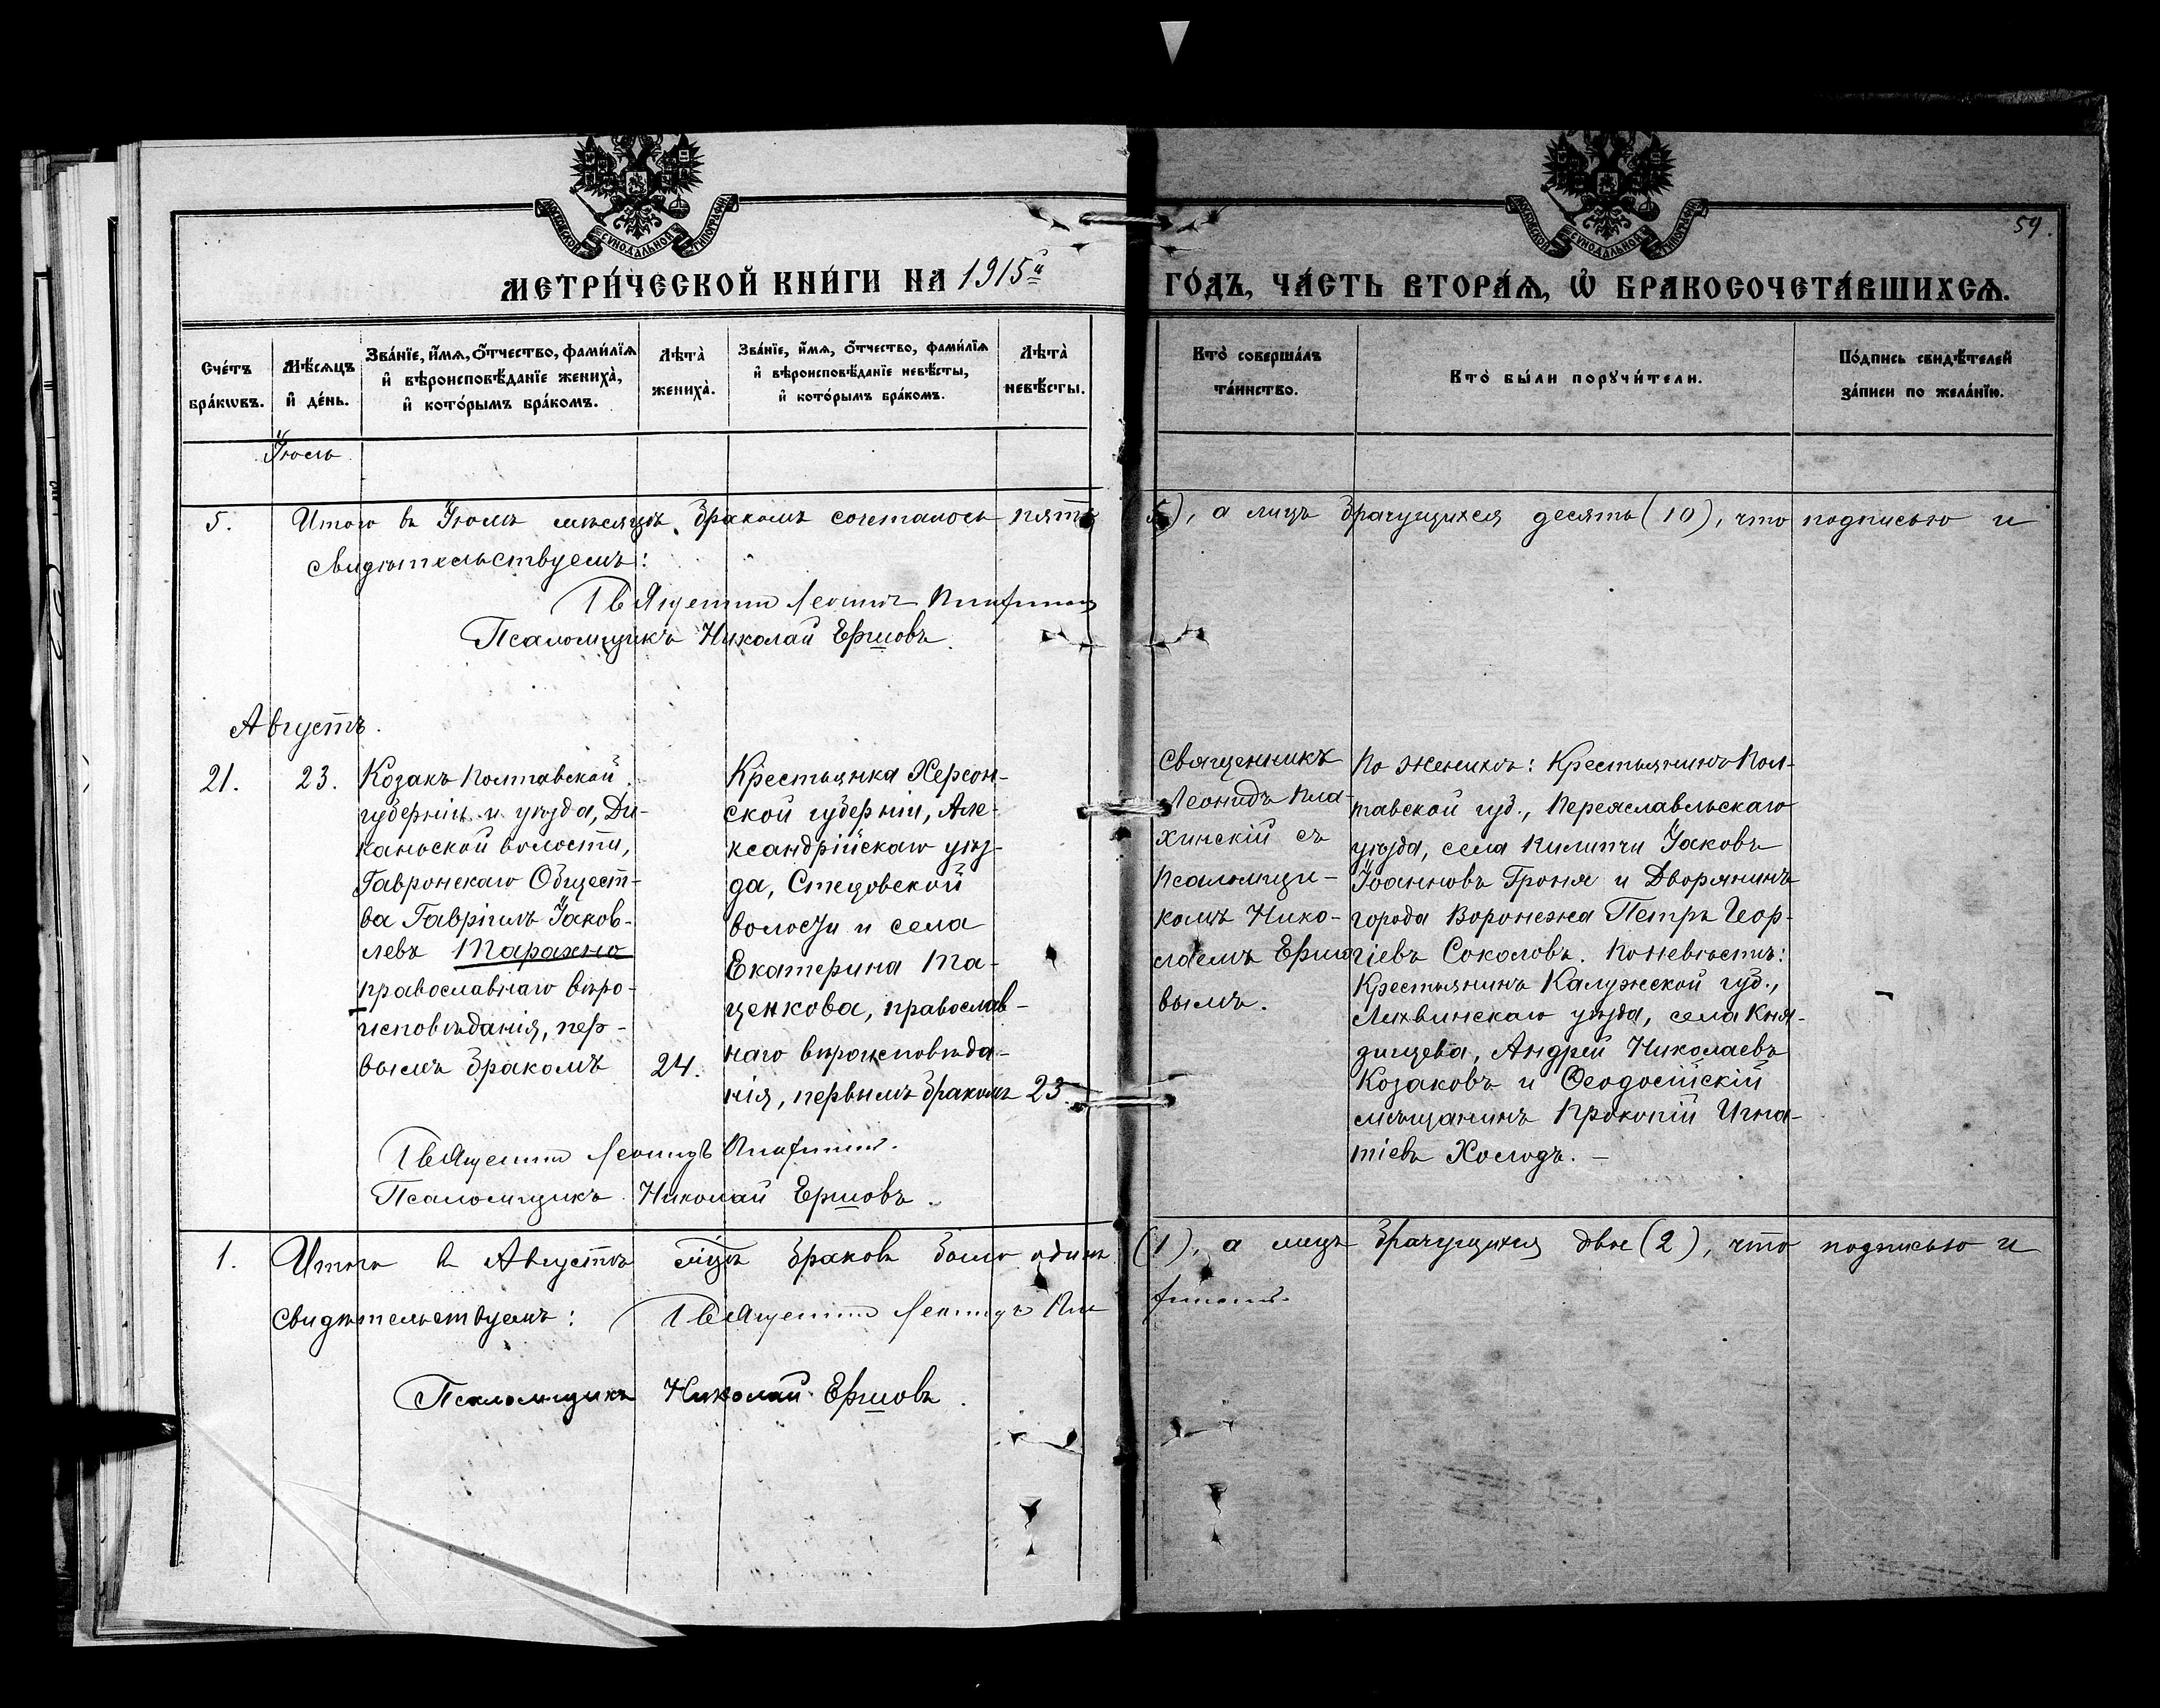 МОСКОВСКОЙ СѴНОДАЛЬНОЙ ТИПОГРАФІИ
МОСКОВСКОЙ СѴНОДАЛЬНОЙ ТИПОГРАФІИ
59.
МЕТРИ́ЧЕСКОЙ КНИ́ГИ НА 1915й
ГО́ДЪ, ЧА́СТЬ ВТОРА́Ѧ, Ѽ БРАКОСОЧЕТА́ВШИХСѦ.
Сче́тъ бра́кѡвъ.
Мѣ́сяцъ и҆ де́нь.
Зва́нїе, и҆́мѧ, ѻ҆́тчество, фами́лїѧ и҆ вѣроисповѣ́данїе жениха̀, и҆ кото́рымъ бра́комъ.
Лѣта̀ жениха̀.
Зва́нїе, и҆́мѧ, ѻ҆́тчество, фами́лїѧ и҆ вѣроисповѣ́данїе невѣ́сты, и҆ кото́рымъ бра́комъ.
Лѣта̀ невѣ́сты.
Кто̀ соверша́лъ та́инство.
Кто̀ бы́ли порꙋчи́тели.
По́дпись свидѣ́телей за́писи по жела́нїю.
Іюль
5. Итого въ Іюлѣ мѣсяцѣ бракомъ сочеталось пять
5), а лицъ брачущихся десять (10), что подписью и
свидѣтельствуемъ:
Священникъ Леонидъ Плахинскій
Псаломщикъ Николай Ершовъ.
Августъ.
21.
23.
Козакъ Полтавской
губерніи и уѣзда, Ди-
каньской волости,
Гавронскаго Общест-
ва Гавріилъ Іаков-
левъ Тарахно
православнаго вѣро-
исповѣданія, пер-
вымъ бракомъ
24.
Крестьянка Херсон-
ской губерніи, Але-
ксандрійскаго уѣз-
да, Стецовской
волости и села
Екатерина Та-
ценкова, православ-
наго вѣроисповѣда-
нія, первымъ бракомъ
23.
Священникъ
Леонидъ Пла-
хинскій съ
псаломщи-
комъ Нико-
лаемъ Ершо
вымъ.
По женихѣ: Крестьянинъ Пол-
тавской губ., Переяславльскаго
уѣзда, села Пилипчи Іаковъ
Іоанновъ Гроня и Дворянинъ
города Воронежа Петръ Геор-
гіевъ Соколовъ. По невѣстѣ:
Крестьянинъ Калужской губ.,
Лихвинскаго уѣзда, села Кня-
зищева, Андрей Николаевъ
Козаковъ и Ѳеодосійскій
мѣщанинъ Прокопій Игна-
тіевъ Холодъ. –
Священникъ Леонидъ Плахинскій.
Псаломщикъ Николай Ершовъ.
1. Итого въ Августѣ мѣсяцѣ браковъ было одинъ
(1), а лицъ брачущихся двое (2), что подписью и
свидѣтельствуемъ: Священникъ Леонидъ Пла
хинскій.
Псаломщикъ Николай Ершовъ.